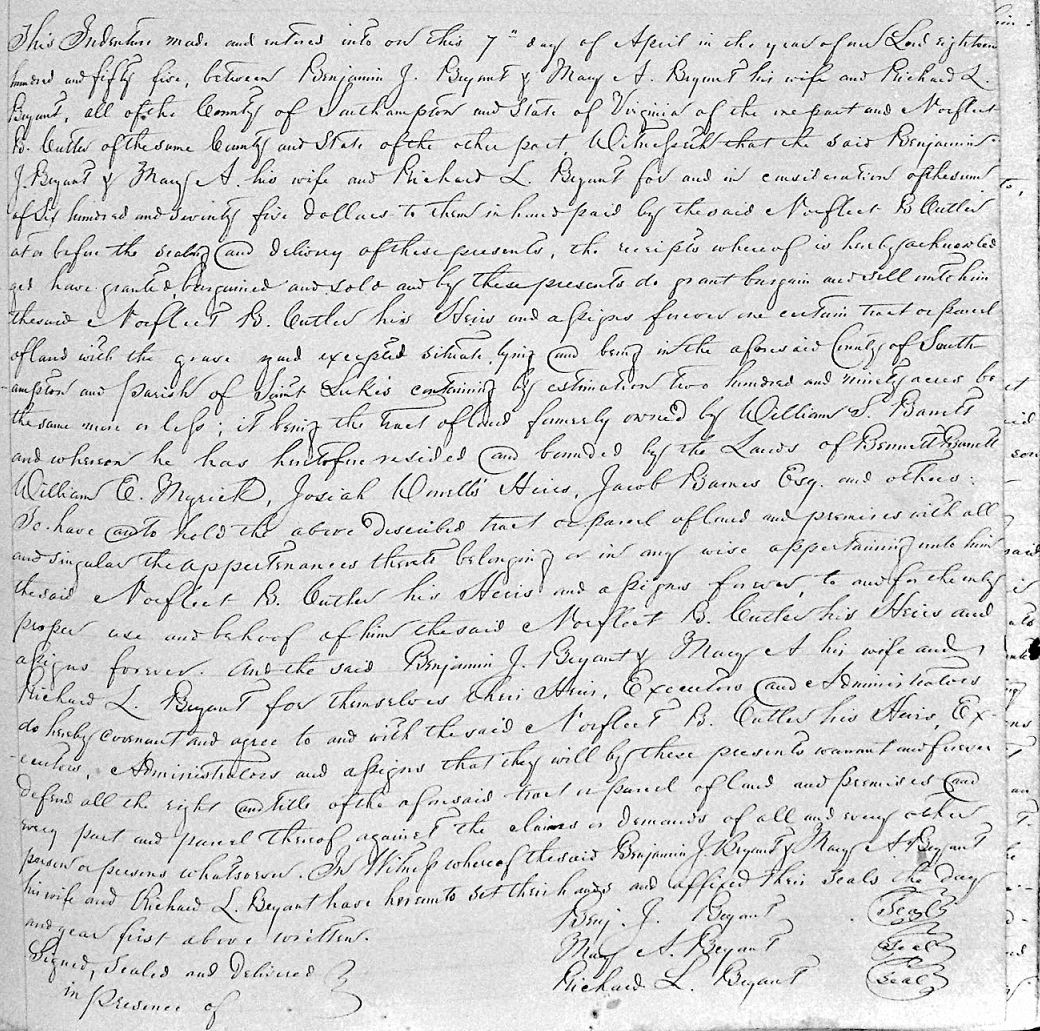 This Indenture made and entered into on this 7" day of April in the year of our Lord eighteen
hundred and fifty five, between Benjamin J. Bryant & Mary A. Bryant his wife and Richard L.
Bryant, all of the County of Southampton and State of Virginia of the one part and Norflect
B. Cutler of the same County and State of the other part, Witnesseth that the said Benjamin
J. Bryant & Mary A. his wife and Richard L. Bryant for and in consideration of the sum
of Six hundred and seventy five dollars to them in hand paid by the said Norflect B. Cutler
at or before the sealing and delivery of these presents, the receipts whereof is hereby acknowled
ged have granted, bargained and sold and by these presents do grant bargain and sell unto him
the said Norflect B. Cutler his Heirs and assigns forever one certain tract or parcel
of land with the grave yard excepted situate lying and being in the aforesaid County of South
ampton and parish of Saint Luke's containing by estimation two hundred and ninety acres be
the same more or less; it being the tract of land formerly owned by William S. Barrett
and whereon he has heretofore resided and bounded by the Lands of Bennett Barrett
William E. Myrick, Josiah Worrells' Heirs, Jacob Barnes Esq. and others:
To have and to hold the above described tract or parcel of land and premises with all
and singular the appertenances thereto belonging or in any wise appertaining unto him
the said Norflect B. Cutler his Heirs and assigns forever, to and for the only
proper use and behoof of him the said Norflect B. Cutler his Heirs and
assigns forever. And the said Benjamin J. Bryant & Mary A his wife and
Richard L. Bryant for themselves their Heirs, Executors and Administrators
do hereby covenant and agree to and with the said Norflect B. Cutler his Heirs, Ex-
-ecutors, Administrators and assigns that they will by these presents warrant and forever
defend all the right and title of the aforesaid tract or parcel of land and premises and
every part and parcel thereof against the claims or demands of all and every other
person or persons whatsoever. In Witness whereof the said Benjamin J. Bryant & Mary A Bryant
his wife and Richard L. Bryant have hereunto set their hands and affixed their seals the day
and year first above written.
Benj. J. Bryant Seal
Mary A. Bryant Seal
Richard L. Bryant Seal
Signed, Sealed and Delivered
in presence of